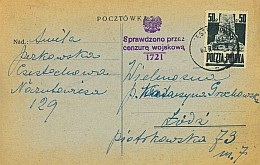 POCZTÓWKA
Sprawdzono przez
cenzurę wojskową
1721
50 50
POCZTA POLSKA
Nad.: Anila
Częstochowa
Narutowicza
129
Wielmożna
p. Katarzyna
Łódź
Piotrkowska 73
m. 7.